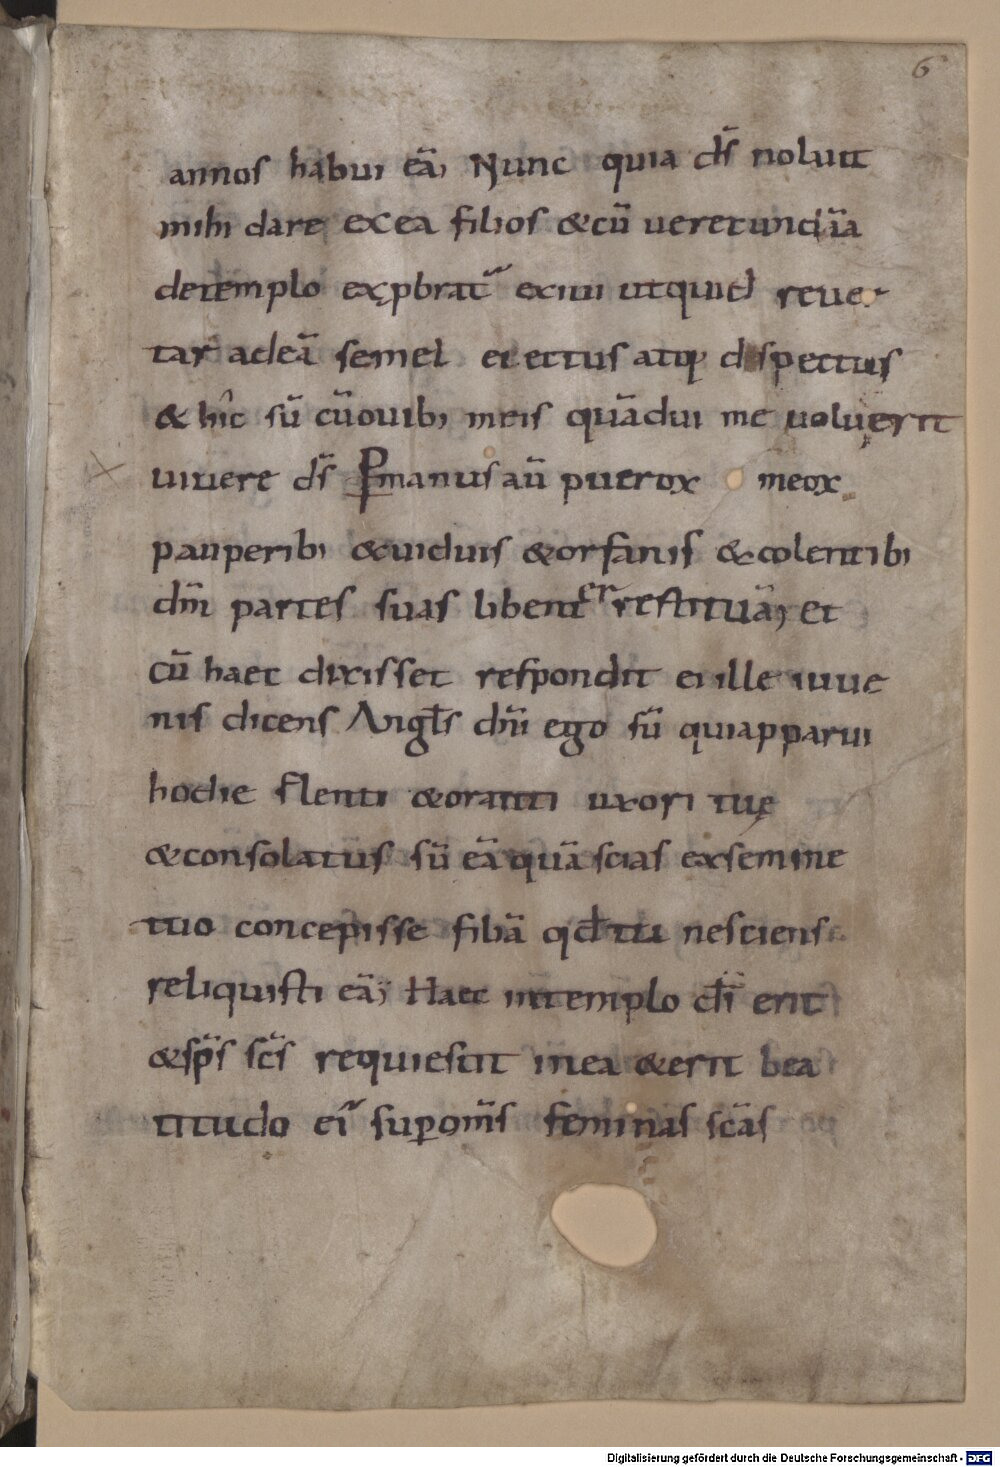 6
annos habui eā; Nunc quia d̄s noluit
mihi dare ex ea filios & cū uerecundiā
de templo exp̱brat᷒ exiui ut quid reuer
tar ad eā semel eiectus atq; dispectus
& hîc sū cū ouib; meis quādiu me uoluerit
uiuere d̄s P̱ manus aū pueroꝝ meoꝝ
pauperib; & uiduis & orfanis & colentib;
dm̄ partes suas libenter restituā; et
cū haec dixisset respondit ei ille iuue
nis dicens Angl̄s dn̄i ego sū qui apparui
hodie flenti & oranti uxori tuę
& consolatus sū eā quā scias ex semine
tuo concepisse filiā qd̄ tu nesciens
reliquisti eā; Haec in templo dī erit
& sp̄s sc̄s requiescit in ea & erit bea
titudo ei᷒ sup̱ om̄s feminas sc̄as
Digitalisierung gefördert durch die Deutsche Forschungsgemeinschaft - DFG